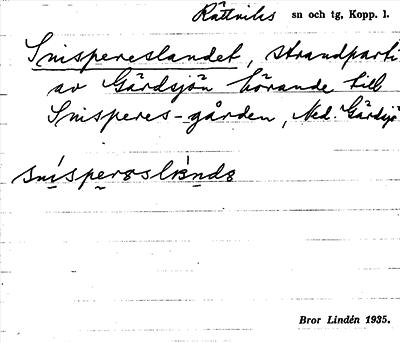 Rättviks sn och tg, Kopp. l.
Snispereslandet, strandparti
av Gärdsjön hörande till
Snisperes-gården, Ned. Gärdsjö
Bror Lindén 1935.